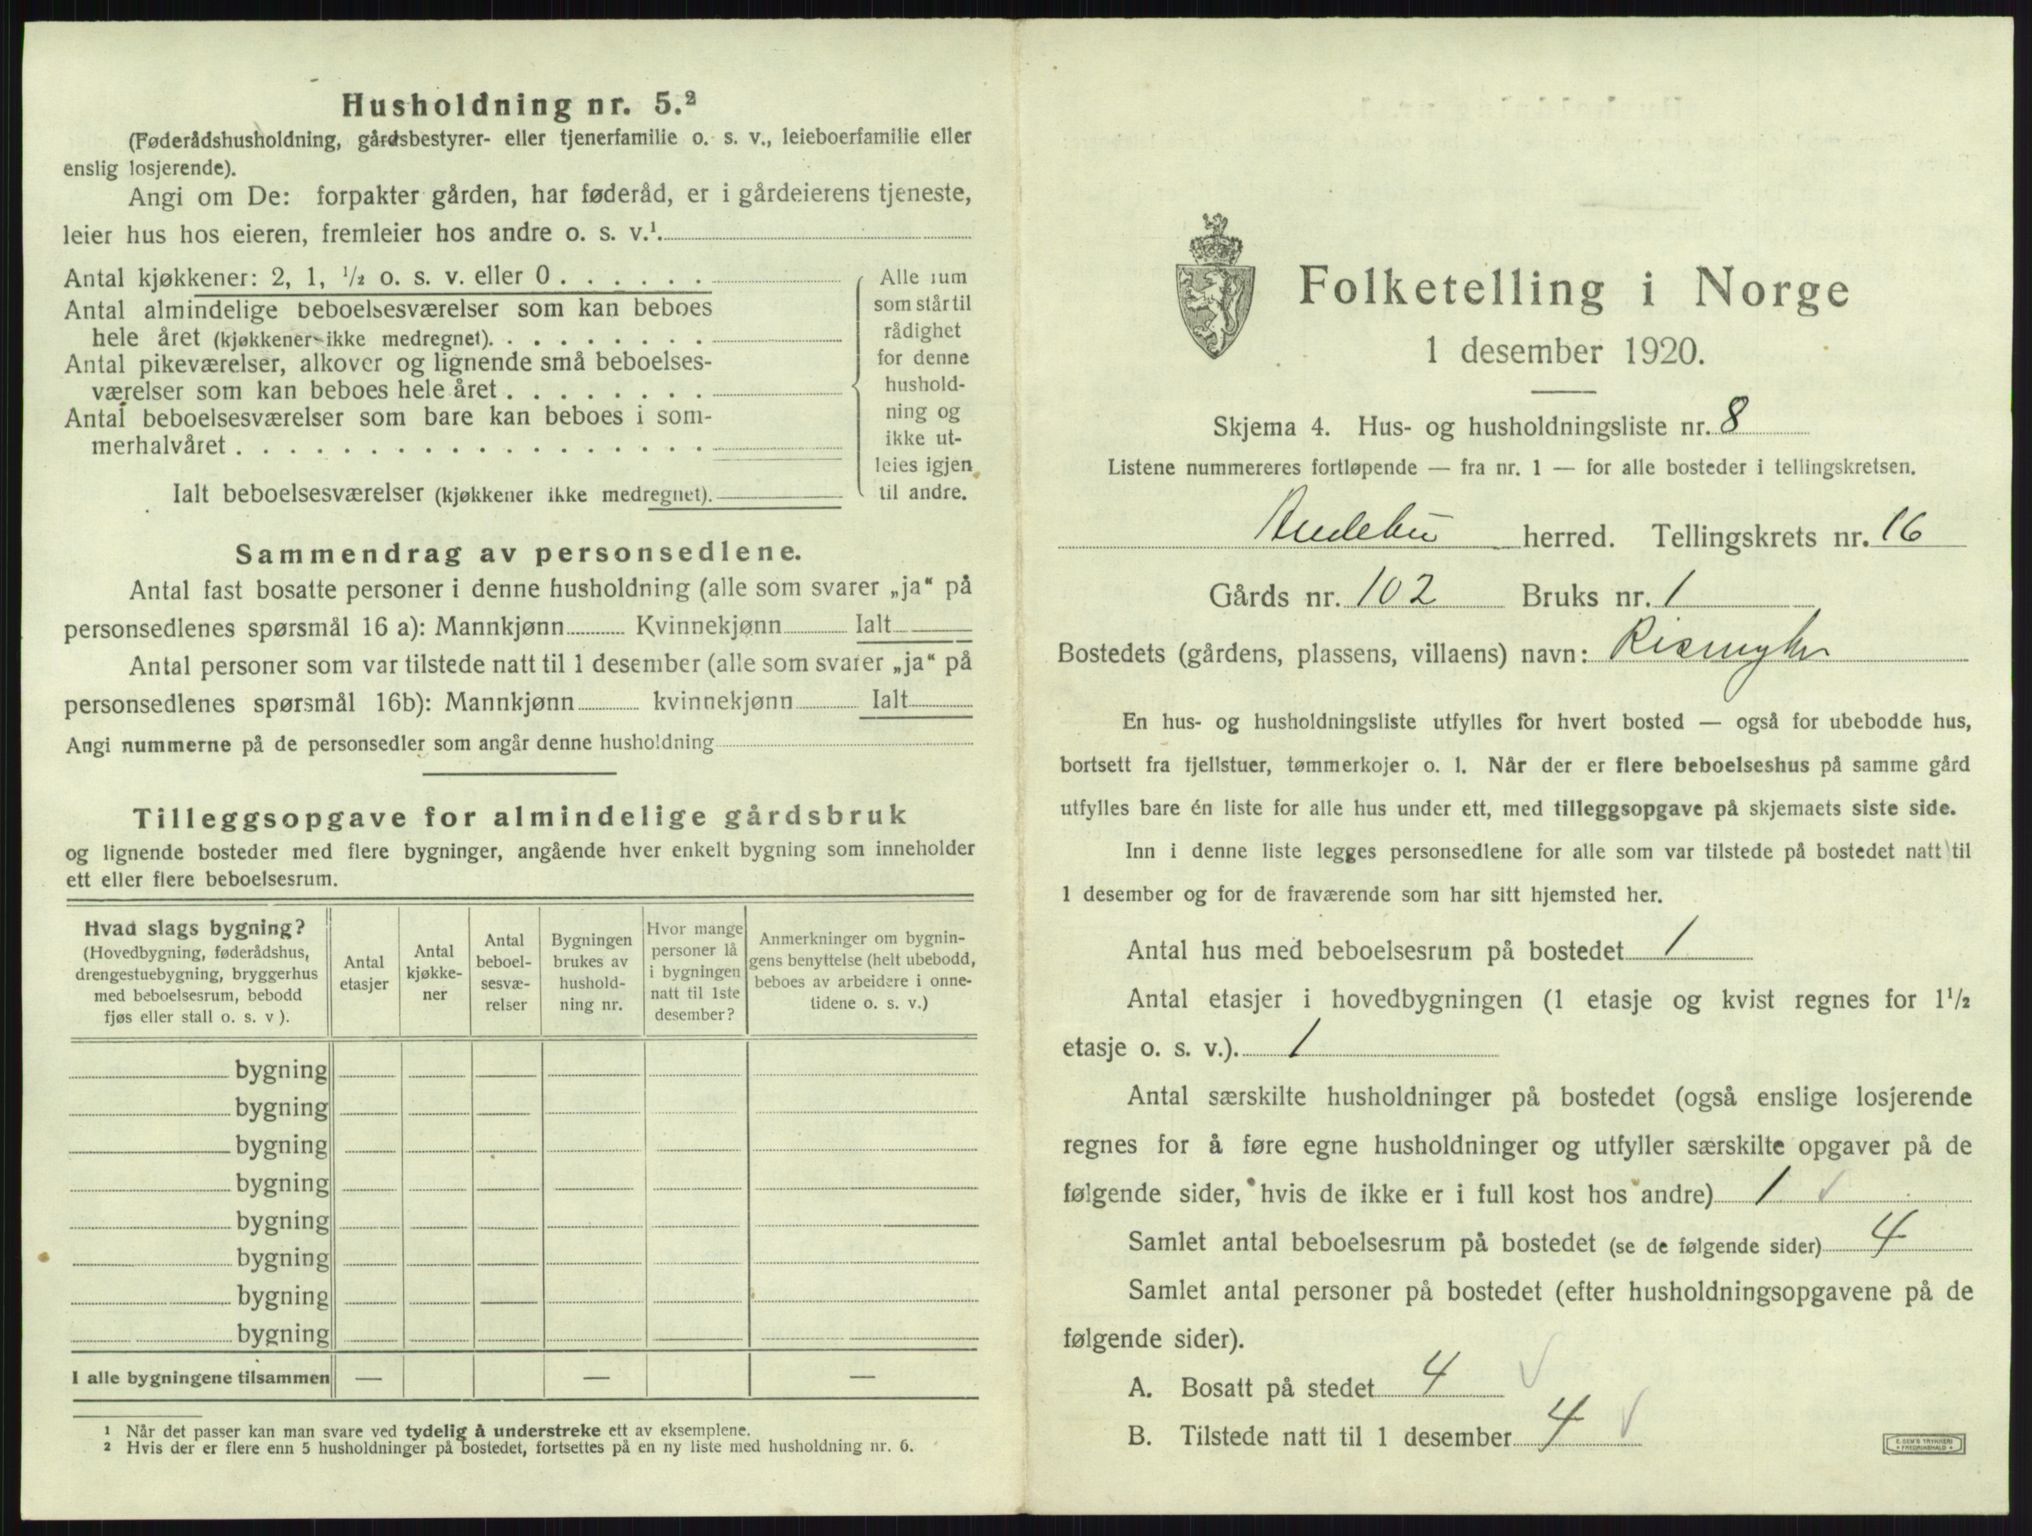 Husholdning nr. 5.²
(Føderådshusholdning, gårdsbestyrer- eller tjenerfamilie o. s. v., leieboerfamilie eller
enslig losjerende).
Angi om De: forpakter gården, har føderåd, er i gårdeierens tjeneste,
leier hus hos eieren, fremleier hos andre o. s. v.¹
Antal kjøkkener: 2, 1, ¹/₂ o. s. v. eller 0 . . . . . .
Antal almindelige beboelsesværelser som kan beboes
hele året (kjøkkener ikke medregnet). . . . . . . . .
Antal pikeværelser, alkover og lignende små beboelses-
værelser som kan beboes hele året . . . . . . . .
Antal beboelsesværelser som bare kan beboes i som-
merhalvåret . . . . . . . . . . . . . . . . . .
Ialt beboelsesværelser (kjøkkener ikke medregnet).
Alle rum
som står til
rådighet
for denne
hushold-
ning og
ikke ut-
leies igjen
til andre.
Sammendrag av personsedlene.
Antal fast bosatte personer i denne husholdning (alle som svarer „ja“ på
personsedlenes spørsmål 16 a): Mannkjønn Kvinnekjønn Ialt
Antal personer som var tilstede natt til 1 desember (alle som svarer „ja“ på
personsedlenes spørsmål 16b): Mannkjønn kvinnekjønn Ialt
Angi nummerne på de personsedler som angår denne husholdning
Tilleggsopgave for almindelige gårdsbruk
og lignende bosteder med flere bygninger, angående hver enkelt bygning som inneholder
ett eller flere beboelsesrum.
Hvad slags bygning?
(Hovedbygning, føderådshus,
drengestuebygning, bryggerhus
med beboelsesrum, bebodd
fjøs eller stall o. s. v ).
Antal
etasjer
Antal
kjøkke-
ner
Antal
beboel-
sesvæ-
relser
Bygningen
brukes av
hushold-
ning nr.
Hvor mange
personer lå
i bygningen
natt til 1ste
desember?
Anmerkninger om bygnin-
gens benyttelse (helt ubebodd,
beboes av arbeidere i onne-
tidene o. s. v.)
bygning
bygning
bygning
bygning
bygning
bygning
bygning
bygning
I alle bygningene tilsammen — — —
¹ Når det passer kan man svare ved tydelig å understreke ett av eksemplene.
² Hvis der er flere enn 5 husholdninger på bostedet, fortsettes på en ny liste med husholdning nr. 6.
Folketelling i Norge
1 desember 1920.
Skjema 4. Hus- og husholdningsliste nr. 8
Listene nummereres fortløpende — fra nr. 1 — for alle bosteder i tellingskretsen.
Andebu herred. Tellingskrets nr. 16
Gårds nr. 102 Bruks nr. 1
Bostedets (gårdens, plassens, villaens) navn: Rismyhr
En hus- og husholdningsliste utfylles for hvert bosted — også for ubebodde hus,
bortsett fra fjellstuer, tømmerkojer o. l. Når der er flere beboelseshus på samme gård
utfylles bare én liste for alle hus under ett, med tilleggsopgave på skjemaets siste side.
Inn i denne liste legges personsedlene for alle som var tilstede på bostedet natt til
1 desember og for de fraværende som har sitt hjemsted her.
Antal hus med beboelsesrum på bostedet 1
Antal etasjer i hovedbygningen (1 etasje og kvist regnes for 1¹/₂
etasje o. s. v.). 1
Antal særskilte husholdninger på bostedet (også enslige losjerende
regnes for å føre egne husholdninger og utfyller særskilte opgaver på de
følgende sider, hvis de ikke er i full kost hos andre) 1 ✓
Samlet antal beboelsesrum på bostedet (se de følgende sider) 4
Samlet antal personer på bostedet (efter husholdningsopgavene på de
følgende sider).
A. Bosatt på stedet 4 ✓
B. Tilstede natt til 1 desember 4 ✓
E. SEM'S TRYKKERI
FREDRIKSHALD